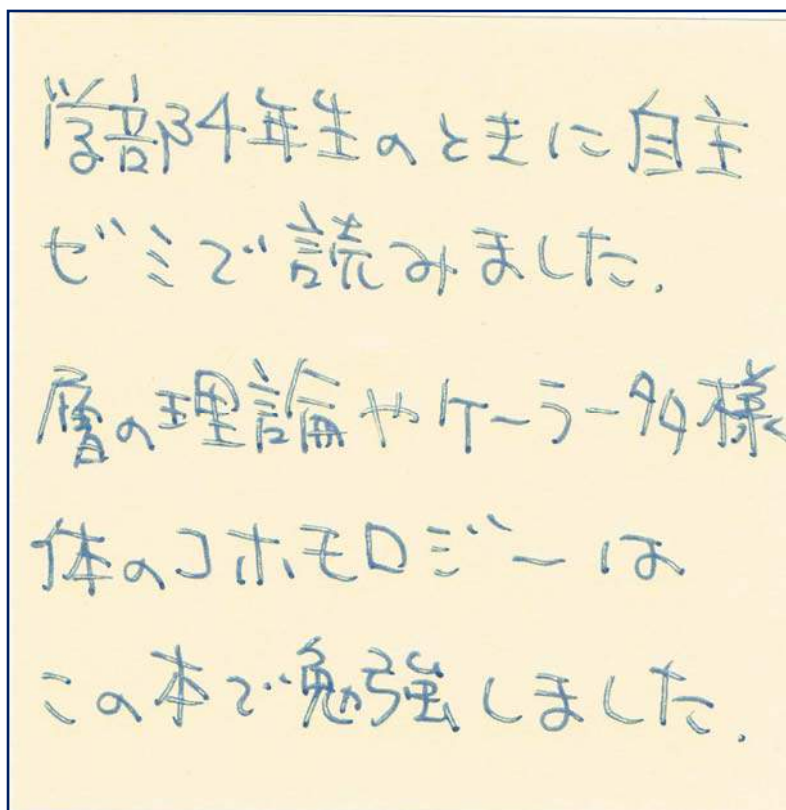 学部4年生のときに自主
ゼミで読みました.
層の理論やケーラー多様
体のコホモロジーは
この本で勉強しました.